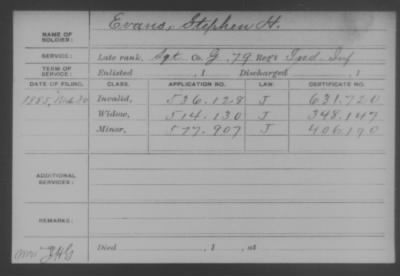 NAME OF SOLDIER: Evans, Stephen H.
SERVICE: Late rank, Sgt Co. G, 79 Reg't Ind Inf
TERM OF SERVICE: Enlisted , 1 Discharged , 1
DATE OF FILING. CLASS. APPLICATION NO. LAW. CERTIFICATE NO.
1885, Invalid, 536.128 J 631.720
Widow, 514.130 J 348.147
Minor, 577.907 J 406.190
ADDITIONAL SERVICES:
REMARKS:
Died , 1 , at